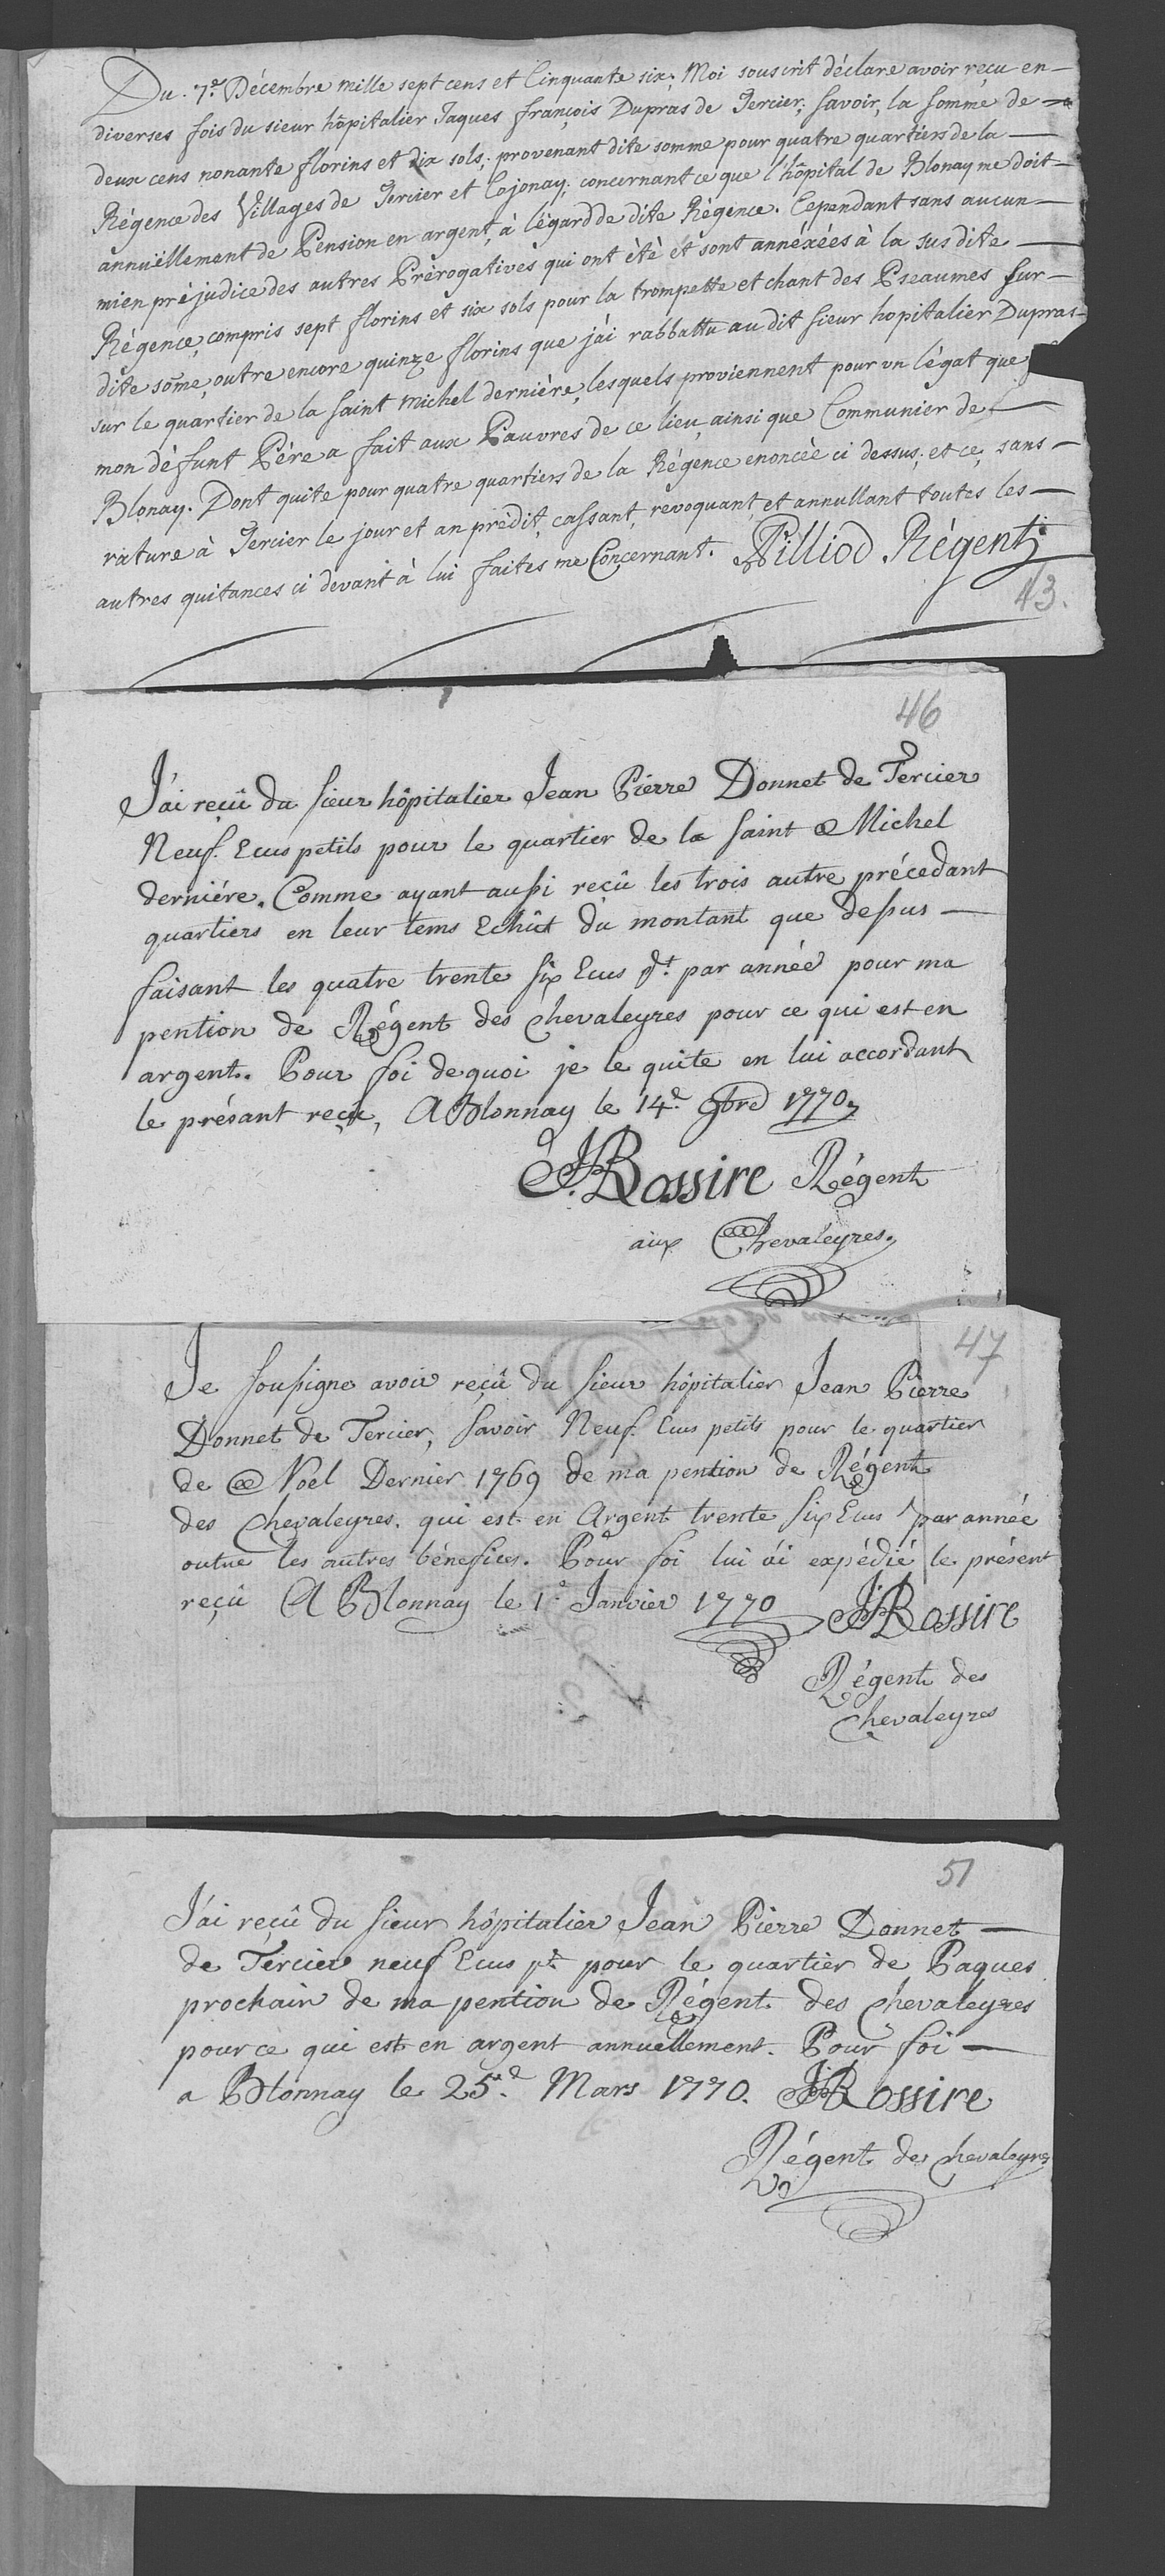 Du. 7.e Décembre mille sept cens et Cinquante six. Moi souscrit déclare avoir reçu en
diverses fois du sieur hôpitalier Jaques françois Dupras de Tercier; savoir, la somme de
deux cens nonante florins et dix sols; provenant dite somme pour quatre quartiers de la
Régence des Villages de Tercier et Cojonay; concernant ce que l'hôpital de Blonay me doit
annuëllement de Pension en argent, à légard de dite Régence. Cependant sans aucun
mien préjudice des autres Prérogatives qui ont été et sont annéxées à la sus dite
Régence, compris sept florins et six sols pour la trompette et chant des Pseaumes sur
dite som̃e, outre encore quinze florins que j'ai rabbattu au dit sieur hopitalier Dupras
sur le quartier de la saint Michel dernière, lesquels proviennent pour vn légat que
mon défunt Pére a fait aux Pauvres de ce lieu, ainsi que Communier de
Blonay. Dont quite pour quatre quartiers de la Régence enoncée ci dessus; et ce, sans
rature à Tercier le jour et an prédit, cassant, revoquant, et annullant toutes les
autres quitances ci devant à lui faites me Concernant. Pilliod Régent
43.
46
J'ai reçû du sieur hôpitalier Jean Pierre Donnet de Tercier
Neuf. Ecus petits pour le quartier de la saint Michel
derniére. Comme ayant aussi reçû les trois autre précedant
quartiers en leur tems Echût du montant que dessus
faisant les quatre trente six Ecus pt. par année pour ma
pention de Régent des Chevaleyres pour ce qui est en
argent. Pour foi dequoi je le quite en lui accordant
le présant reçu, A Blonnay le 14.e 9bre 1770
JBossire Régent
aux Chevaleyres.
47
Je soussigne avoir reçû du sieur hôpitalier Jean Pierre
Donnet de Tercier, savoir Neuf. Ecus petits pour le quartier
de Noel Dernier 1769 de ma pention de Régent
des Chevaleyres. qui est en Argent trente six Ecus par année
outre les autres bénefices. Pour foi lui ai expédié le présent
reçû A Blonnay le 1.e Janvier 1770 JBossire
Régent des
Chevaleyres
51
J'ai reçû du sieur hôpitalier Jean Pierre Donnet
de Tercier neuf Ecus pt. pour le quartier de Paques
prochain de ma pention de Régent des Chevaleyres
pour ce qui est en argent annuellement. Pour foi
a Blonnay le 25.e Mars 1770. JBossire
Régent de Chevaleyres